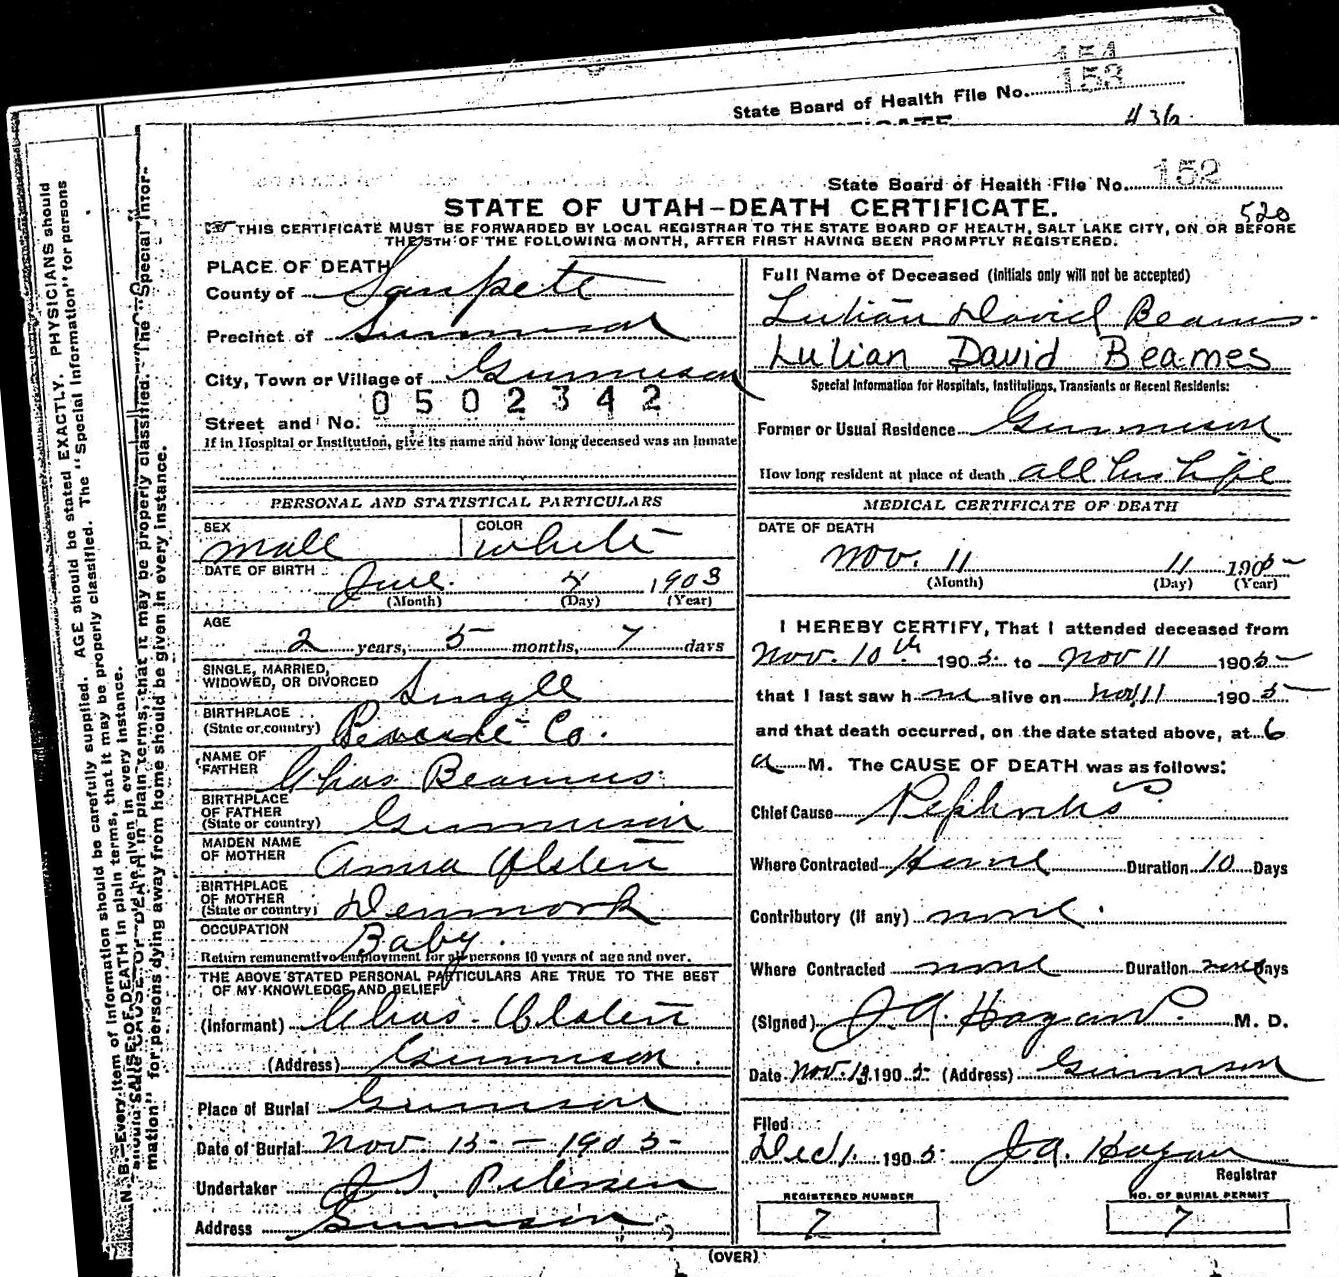 154
153
State Board of Health File No.
436
State Board of Health File No. 152
STATE OF UTAH—DEATH CERTIFICATE.
520
THIS CERTIFICATE MUST BE FORWARDED BY LOCAL REGISTRAR TO THE STATE BOARD OF HEALTH, SALT LAKE CITY, ON OR BEFORE
THE 5TH OF THE FOLLOWING MONTH, AFTER FIRST HAVING BEEN PROMPTLY REGISTERED.
PLACE OF DEATH
County of Sanpete
Precinct of Gunnison
City, Town or Village of Gunnison
0502342
Street and No.
If in Hospital or Institution, give its name and how long deceased was an inmate
PERSONAL AND STATISTICAL PARTICULARS
SEX COLOR
Male White
DATE OF BIRTH
June 4 1903
(Month) (Day) (Year)
AGE
2 years, 5 months, 7 days
SINGLE, MARRIED,
WIDOWED, OR DIVORCED Single
BIRTHPLACE
(State or country) Co.
NAME OF
FATHER Chas Beamus
BIRTHPLACE
OF FATHER
(State or country) Gunnison
MAIDEN NAME
OF MOTHER Anna Olsten
BIRTHPLACE
OF MOTHER
(State or country) Denmark
OCCUPATION
Baby
Return remunerative employment for all persons 10 years of age and over.
THE ABOVE STATED PERSONAL PARTICULARS ARE TRUE TO THE BEST
OF MY KNOWLEDGE AND BELIEF
(Informant) Chas. Olsten
(Address) Gunnison.
Place of Burial Gunnison
Date of Burial Nov. 13 - 1905
Undertaker J. S. Petersen
Address Gunnison
Full Name of Deceased (Initials only will not be accepted)
Lulian David Beams.
Lulian David Beames
Special Information for Hospitals, Institutions, Transients or Recent Residents:
Former or Usual Residence Gunnison
How long resident at place of death all his life
MEDICAL CERTIFICATE OF DEATH
DATE OF DEATH
Nov. 11 11 1905
(Month) (Day) (Year)
I HEREBY CERTIFY, That I attended deceased from
Nov. 10th 1905 to Nov 11 1905
that I last saw him alive on Nov 11 1905
and that death occurred, on the date stated above, at 6
a M. The CAUSE OF DEATH was as follows:
Chief Cause Nephritis
Where Contracted Home Duration 10 Days
Contributory (if any) none.
Where Contracted none Duration none Days
(Signed) J. A. Hagan M. D.
Date Nov. 13 1905 (Address) Gunnison
Filed
Dec 1. 1905 J. A. Hagan
Registrar
REGISTERED NUMBER
7
NO. OF BURIAL PERMIT
7
(OVER)
N. B.—Every item of information should be carefully supplied. AGE should be stated EXACTLY. PHYSICIANS should
mation" for persons dying away from home should be given in every instance.